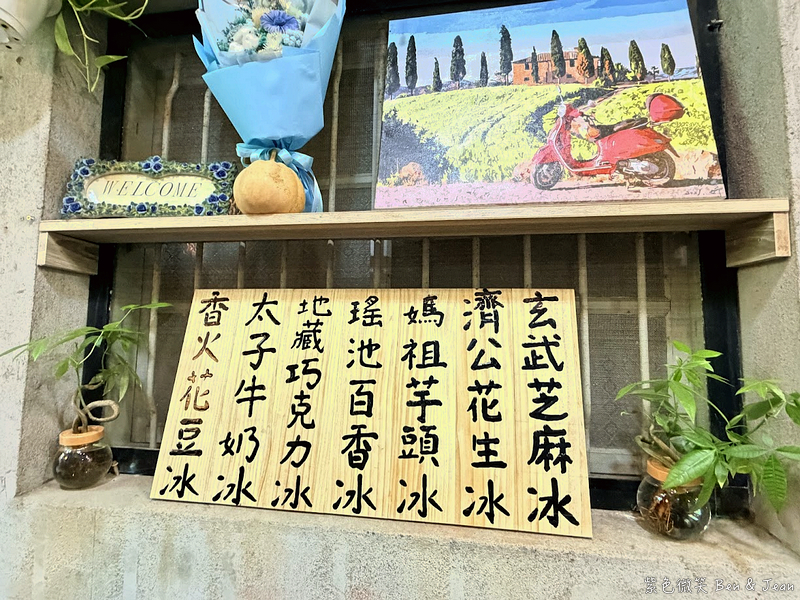 WELCOME
玄武芝麻冰
濟公花生冰
媽祖芋頭冰
瑤池百香冰
地藏巧克力冰
太子牛奶冰
香火花豆冰
紫色微笑 Ben & Jean